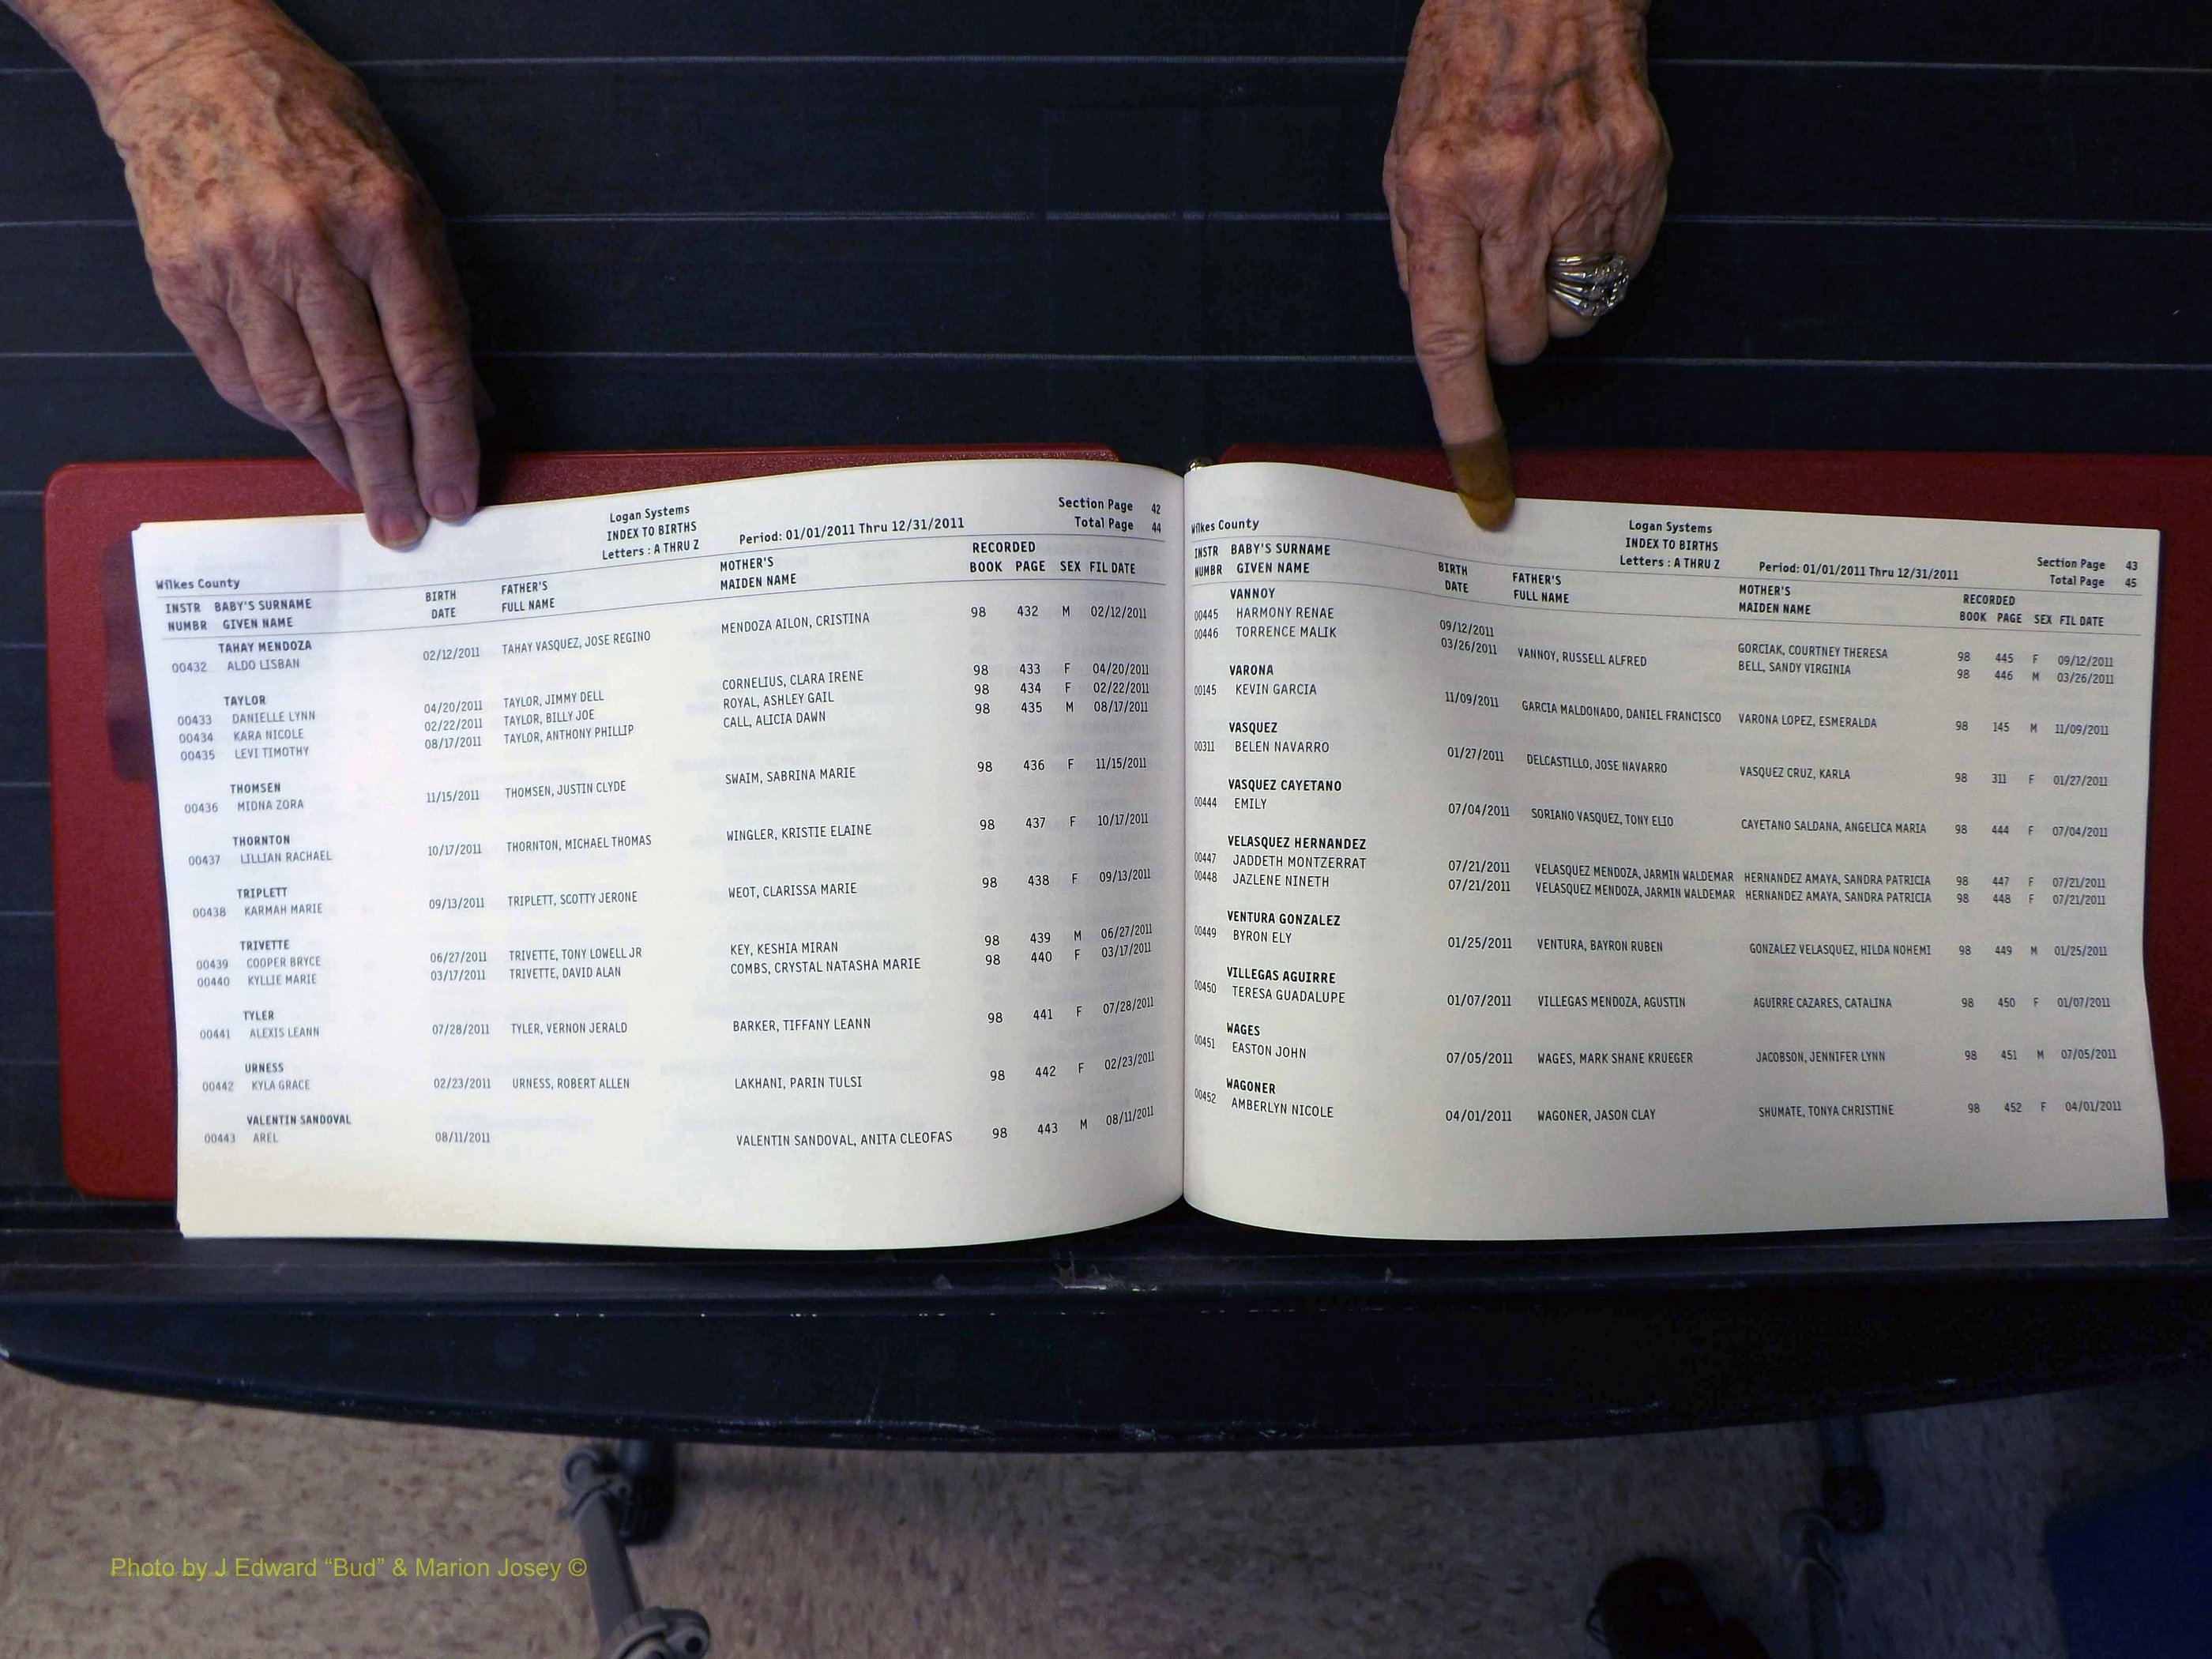 Logan Systems
INDEX TO BIRTHS
Letters : A THRU Z
Period: 01/01/2011 Thru 12/31/2011
Section Page 42
Total Page 44
Wilkes County
INSTR BABY'S SURNAME BIRTH FATHER'S MOTHER'S RECORDED
NUMBR GIVEN NAME DATE FULL NAME MAIDEN NAME BOOK PAGE SEX FIL DATE
TAHAY MENDOZA
00432 ALDO LISBAN 02/12/2011 TAHAY VASQUEZ, JOSE REGINO MENDOZA AILON, CRISTINA 98 432 M 02/12/2011
TAYLOR
00433 DANIELLE LYNN 04/20/2011 TAYLOR, JIMMY DELL CORNELIUS, CLARA IRENE 98 433 F 04/20/2011
00434 KARA NICOLE 02/22/2011 TAYLOR, BILLY JOE ROYAL, ASHLEY GAIL 98 434 F 02/22/2011
00435 LEVI TIMOTHY 08/17/2011 TAYLOR, ANTHONY PHILLIP CALL, ALICIA DAWN 98 435 M 08/17/2011
THOMSEN
00436 MIDNA ZORA 11/15/2011 THOMSEN, JUSTIN CLYDE SWAIM, SABRINA MARIE 98 436 F 11/15/2011
THORNTON
00437 LILLIAN RACHAEL 10/17/2011 THORNTON, MICHAEL THOMAS WINGLER, KRISTIE ELAINE 98 437 F 10/17/2011
TRIPLETT
00438 KARMAH MARIE 09/13/2011 TRIPLETT, SCOTTY JERONE WEOT, CLARISSA MARIE 98 438 F 09/13/2011
TRIVETTE
00439 COOPER BRYCE 06/27/2011 TRIVETTE, TONY LOWELL JR KEY, KESHIA MIRAN 98 439 M 06/27/2011
00440 KYLLIE MARIE 03/17/2011 TRIVETTE, DAVID ALAN COMBS, CRYSTAL NATASHA MARIE 98 440 F 03/17/2011
TYLER
00441 ALEXIS LEANN 07/28/2011 TYLER, VERNON JERALD BARKER, TIFFANY LEANN 98 441 F 07/28/2011
URNESS
00442 KYLA GRACE 02/23/2011 URNESS, ROBERT ALLEN LAKHANI, PARIN TULSI 98 442 F 02/23/2011
VALENTIN SANDOVAL
00443 AREL 08/11/2011 VALENTIN SANDOVAL, ANITA CLEOFAS 98 443 M 08/11/2011
Logan Systems
INDEX TO BIRTHS
Letters : A THRU Z
Period: 01/01/2011 Thru 12/31/2011
Section Page 43
Total Page 45
Wilkes County
INSTR BABY'S SURNAME BIRTH FATHER'S MOTHER'S RECORDED
NUMBR GIVEN NAME DATE FULL NAME MAIDEN NAME BOOK PAGE SEX FIL DATE
VANNOY
00445 HARMONY RENAE 09/12/2011 VANNOY, RUSSELL ALFRED GORCIAK, COURTNEY THERESA 98 445 F 09/12/2011
00446 TORRENCE MALIK 03/26/2011 BELL, SANDY VIRGINIA 98 446 M 03/26/2011
VARONA
00145 KEVIN GARCIA 11/09/2011 GARCIA MALDONADO, DANIEL FRANCISCO VARONA LOPEZ, ESMERALDA 98 145 M 11/09/2011
VASQUEZ
00311 BELEN NAVARRO 01/27/2011 DELCASTILLO, JOSE NAVARRO VASQUEZ CRUZ, KARLA 98 311 F 01/27/2011
VASQUEZ CAYETANO
00444 EMILY 07/04/2011 SORIANO VASQUEZ, TONY ELIO CAYETANO SALDANA, ANGELICA MARIA 98 444 F 07/04/2011
VELASQUEZ HERNANDEZ
00447 JADDETH MONTZERRAT 07/21/2011 VELASQUEZ MENDOZA, JARMIN WALDEMAR HERNANDEZ AMAYA, SANDRA PATRICIA 98 447 F 07/21/2011
00448 JAZLENE NINETH 07/21/2011 VELASQUEZ MENDOZA, JARMIN WALDEMAR HERNANDEZ AMAYA, SANDRA PATRICIA 98 448 F 07/21/2011
VENTURA GONZALEZ
00449 BYRON ELY 01/25/2011 VENTURA, BAYRON RUBEN GONZALEZ VELASQUEZ, HILDA NOHEMI 98 449 M 01/25/2011
VILLEGAS AGUIRRE
00450 TERESA GUADALUPE 01/07/2011 VILLEGAS MENDOZA, AGUSTIN AGUIRRE CAZARES, CATALINA 98 450 F 01/07/2011
WAGES
00451 EASTON JOHN 07/05/2011 WAGES, MARK SHANE KRUEGER JACOBSON, JENNIFER LYNN 98 451 M 07/05/2011
WAGONER
00452 AMBERLYN NICOLE 04/01/2011 WAGONER, JASON CLAY SHUMATE, TONYA CHRISTINE 98 452 F 04/01/2011
Photo by J Edward “Bud” & Marion Josey ©